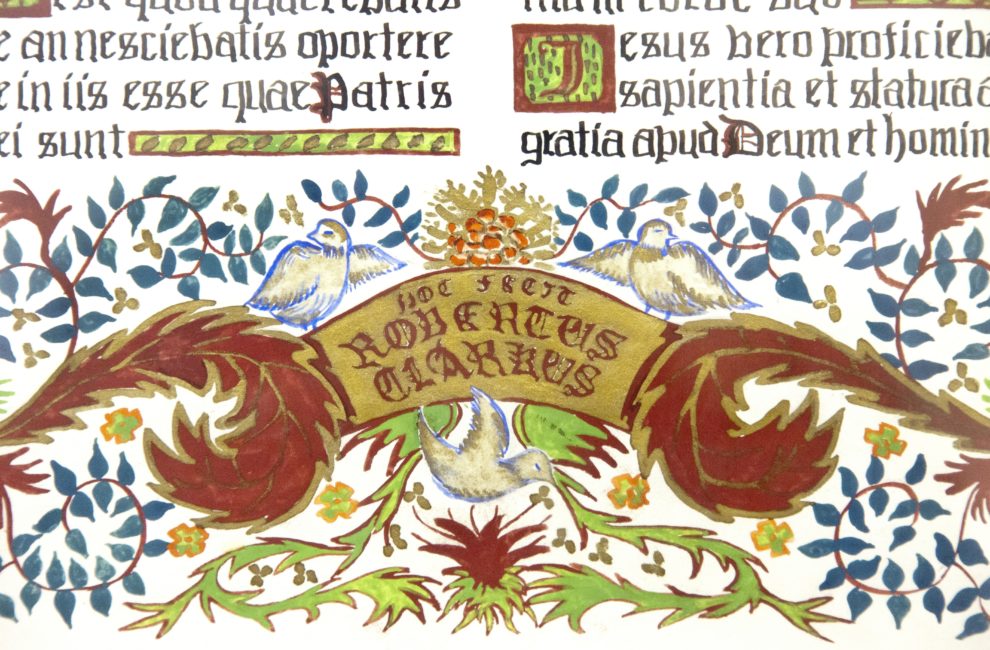 quod quaerebatis
e an nesciebatis oportere
e in iis esse quae Patris
ei sunt
in corde suo
Jesus vero proficieba
sapientia et statura a
gratia apud Deum et homin
HOC FECIT
ROBERTUS
CLARKUS